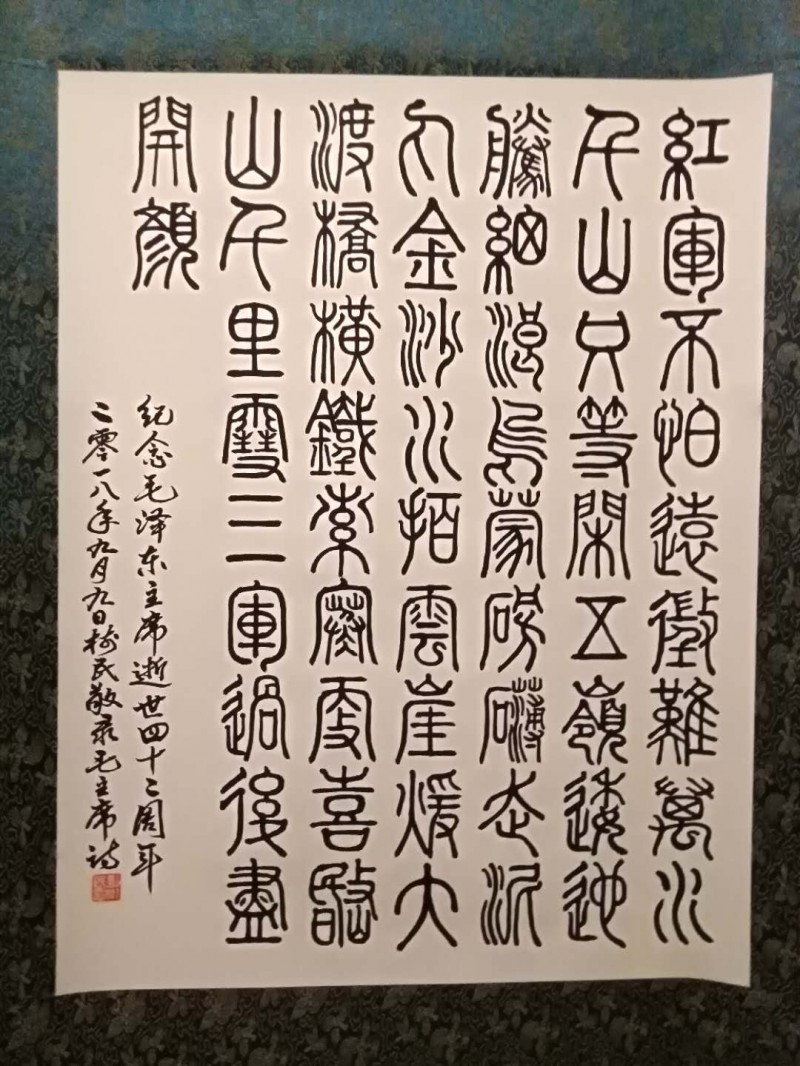 紅軍不怕遠徵難萬水
千山只等閑五嶺逶迤
騰細浪烏蒙磅礴走泥
丸金沙水拍雲崖煖大
渡橋橫鐵索寒更喜岷
山千里雪三軍過後盡
開顏
纪念毛泽东主席逝世四十二周年
二零一八年九月九日树民敬录毛主席诗